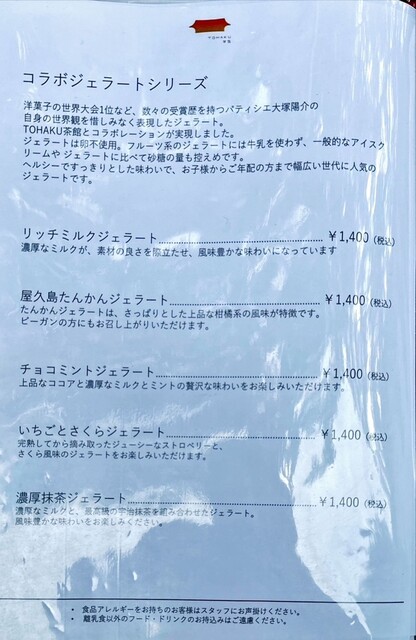 コラボジェラートシリーズ
洋菓子の世界大会1位など、数々の受賞歴を持つパティシエ大塚陽介の
自身の世界観を惜しみなく表現したジェラート。
TOHAKU茶館とコラボレーションが実現しました。
ジェラートは卵不使用。フルーツ系のジェラートには牛乳を使わず、一般的なアイスク
リームや ジェラートに比べて砂糖の量も控えめです。
ヘルシーですっきりとした味わいで、お子様からご年配の方まで幅広い世代に人気の
ジェラートです。
リッチミルクジェラート ¥1,400 (税込)
濃厚なミルクが、素材の良さを際立たせ、風味豊かな味わいになっています
屋久島たんかんジェラート ¥1,400 (税込)
たんかんジェラートは、さっぱりとした上品な柑橘系の風味が特徴です。
ビーガンの方にもお召し上がりいただけます。
チョコミントジェラート ¥1,400 (税込)
上品なココアと濃厚なミルクとミントの贅沢な味わいをお楽しみいただけます。
いちごとさくらジェラート ¥1,400 (税込)
完熟してから摘み取ったジューシーなストロベリーと、
さくら風味のジェラートをお楽しみいただけます。
濃厚抹茶ジェラート ¥1,400 (税込)
濃厚なミルクと、最高級の宇治抹茶を組み合わせたジェラート。
風味豊かな味わいをお楽しみください。
• 食品アレルギーをお持ちのお客様はスタッフにお声掛けください。
• 離乳食以外のフード・ドリンクのお持込みはご遠慮ください。